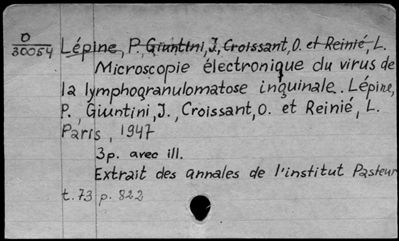 D
30054
Lépine, P., Giuntini, J., Croissant, O. et Reinié, L.
Microscopie électronique du virus de
la lymphogranulomatose inguinale. Lépine,
P., Giuntini, J., Croissant, O. et Reinié, L.
Paris, 1947
3p. avec ill.
Extrait des annales de l'institut Pasteur
t. 73 p. 822